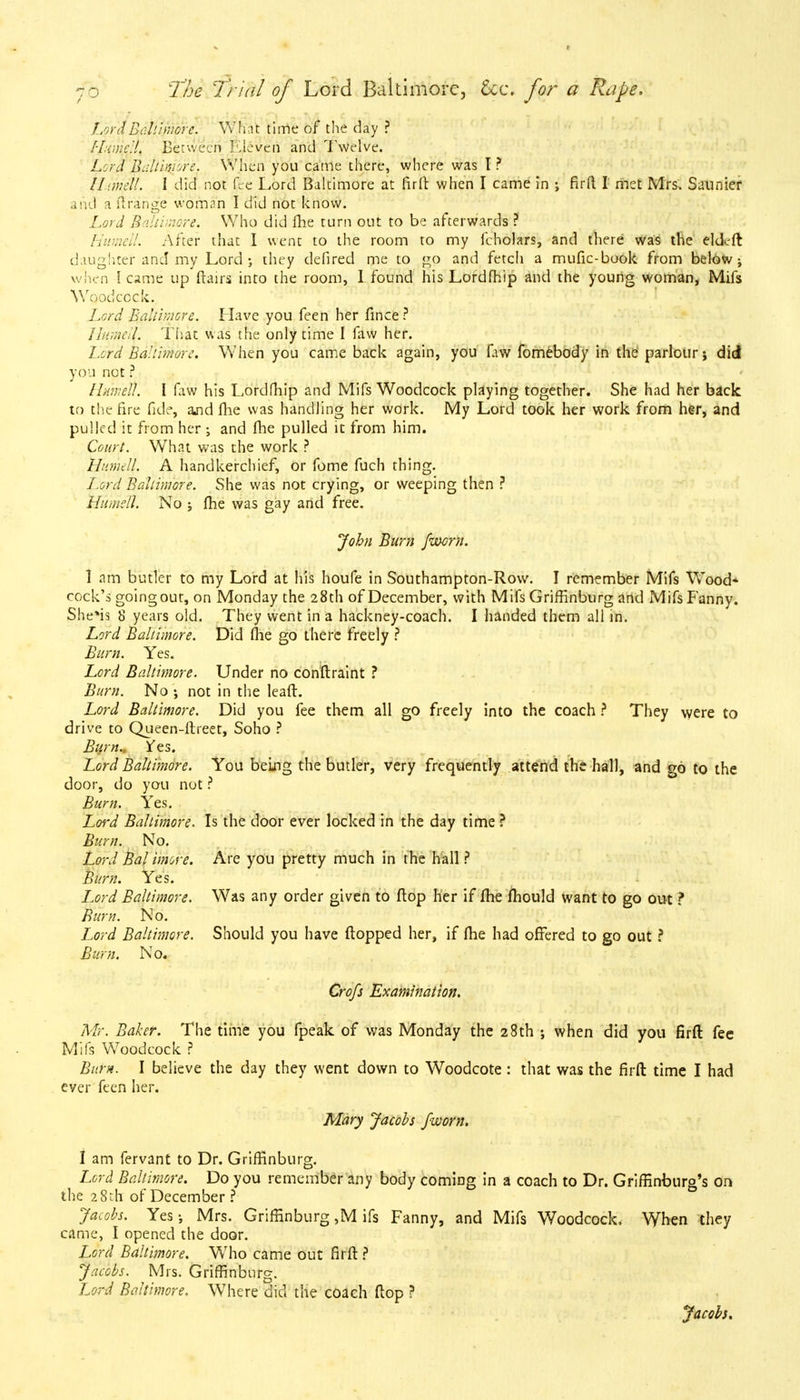 70 The Trial of Lord Baltimore, &c. for a Rape.
Lord Baltimore. What time of the day ?
Humell. Between Eleven and Twelve.
Lord Baltimore. When you came there, where was I ?
Humell. I did not ſee Lord Baltimore at firſt when I came in ; firſt I met Mrs. Saunier
and a ſtrange woman I did not know.
Lord Baltimore. Who did ſhe turn out to be afterwards ?
Humell. After that I went to the room to my ſcholars, and there was the eldeſt
daughter and my Lord ; they deſired me to go and fetch a muſic-book from below ;
when I came up ſtairs into the room, I found his Lordſhip and the young woman, Miſs
Woodcock.
Lord Baltimore. Have you ſeen her ſince ?
Humell. That was the only time I ſaw her.
Lord Baltimore. When you came back again, you ſaw ſomebody in the parlour ; did
you not ?
Humell. I ſaw his Lordſhip and Miſs Woodcock playing together. She had her back
to the fire ſide, and ſhe was handling her work. My Lord took her work from her, and
pulled it from her ; and ſhe pulled it from him.
Court. What was the work ?
Humell. A handkerchief, or ſome ſuch thing.
Lord Baltimore. She was not crying, or weeping then ?
Humell. No ; ſhe was gay and free.
John Burn ſworn.
I am butler to my Lord at his houſe in Southampton-Row. I remember Miſs Wood-
cock's going out, on Monday the 28th of December, with Miſs Griffinburg and Miſs Fanny.
She's 8 years old. They went in a hackney-coach. I handed them all in.
Lord Baltimore. Did ſhe go there freely ?
Burn. Yes.
Lord Baltimore. Under no conſtraint ?
Burn. No ; not in the leaſt.
Lord Baltimore. Did you ſee them all go freely into the coach ? They were to
drive to Queen-ſtreet, Soho ?
Burn. Yes.
Lord Baltimore. You being the butler, very frequently attend the hall, and go to the
door, do you not ?
Burn. Yes.
Lord Baltimore. Is the door ever locked in the day time ?
Burn. No.
Lord Bal imore. Are you pretty much in the hall ?
Burn. Yes.
Lord Baltimore. Was any order given to ſtop her if ſhe ſhould want to go out ?
Burn. No.
Lord Baltimore. Should you have ſtopped her, if ſhe had offered to go out ?
Burn. No.
Croſs Examination.
Mr. Baker. The time you ſpeak of was Monday the 28th ; when did you firſt ſee
Miſs Woodcock ?
Burn. I believe the day they went down to Woodcote : that was the firſt time I had
ever ſeen her.
Mary Jacobs ſworn.
I am ſervant to Dr. Griffinburg.
Lord Baltimore. Do you remember any body coming in a coach to Dr. Griffinburg's on
the 28th of December ?
Jacobs. Yes ; Mrs. Griffinburg ,M iſs Fanny, and Miſs Woodcock. When they
came, I opened the door.
Lord Baltimore. Who came out firſt ?
Jacobs. Mrs. Griffinburg.
Lord Baltimore. Where did the coach ſtop ?
Jacobs.